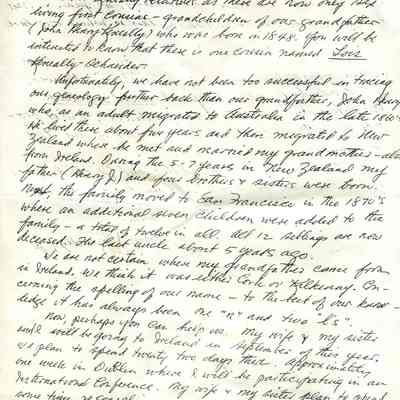 relatives as these are now only
living first cousins - grandchildren of our grandfather
(John Henry Keneally) who were born in 1848. You will be
interested to know that there is one cousin named Lois
Keneally Schneider.
Unfortunately, we have not been too successful in tracing
our geneology further back than our grandfather, John Henry
who, as an adult migrated to Australia in the late 1860's
He lived there about five years and then migrated to New
Zealand where he met and married my grandmother - also
from Ireland. During the 5-7 years in New Zealand my
father (Henry J.) and four brothers & sisters were born.
Next, the family moved to San Francisco in the 1870's
where an additional seven children were added to the
family - a total of twelve in all. All 12 siblings are now
deceased. The last uncle about 5 years ago.
We are not certain where my grandfather came from
in Ireland. We think it was either Cork or Kilkenny. Con-
cerning the spelling of our name - to the best of our know-
ledge it has always been one "n" and two "l's".
Now, perhaps you can help us. My wife & my sister
and I will be going to Ireland in September of this year.
We plan to spend twenty two days there. Approximately
one week in Dublin where I will be participating in an
International Conference. My wife & my sister plan to spend
some time